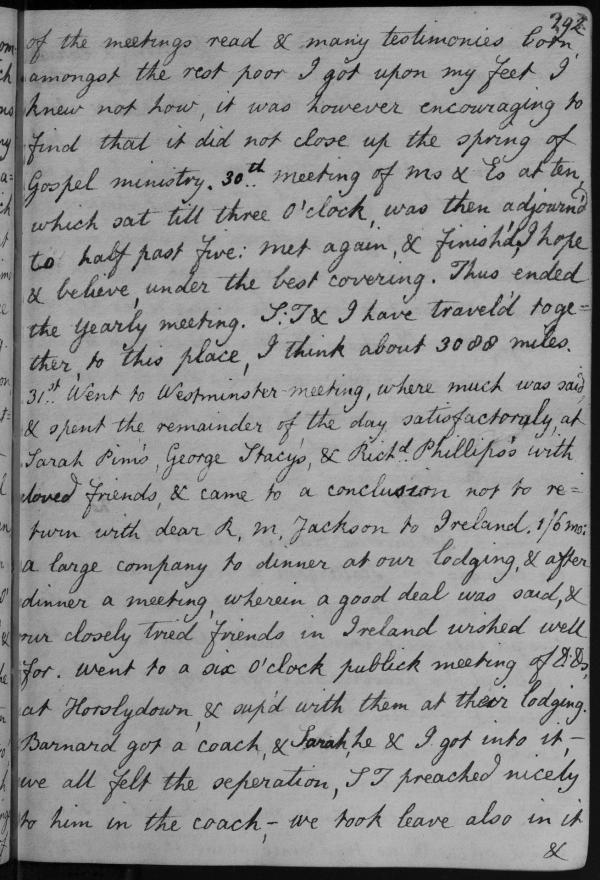 292
of the meetings read & many testimonies born
amongst the rest poor I got upon my feet I
knew not how, it was however encouraging to
find that it did not close up the spring of
Gospel ministry. 30th.. meeting of ms & Es at ten,
which sat till three O'clock, was then adjourn'd
to half past five: met again, & finish'd, I hope
& believe, under the best covering. Thus ended
the Yearly meeting. S:T & I have travel'd toge=
ther, to this place, I think about 3088 miles.
31st Went to Westminster-meeting, where much was said,
& spent the remainder of the day satisfactoraly, at
Sarah Pim's, George Stacy's, & Richd. Phillips's with
loved friends, & came to a conclusion not to re=
turn with dear R, M, Jackson to Ireland. 1/6 mo:
a large company to dinner at our lodging, & after
dinner a meeting, wherein a good deal was said, &
our closely tried friends in Ireland wished well
for. went to a six O'clock publick meeting of
at Horslydown, & sup'd with them at their lodging.
Barnard got a coach, & Sarah, he & I got into it, -
we all felt the seperation, S T preached nicely
to him in the coach, - we took leave also in it
&